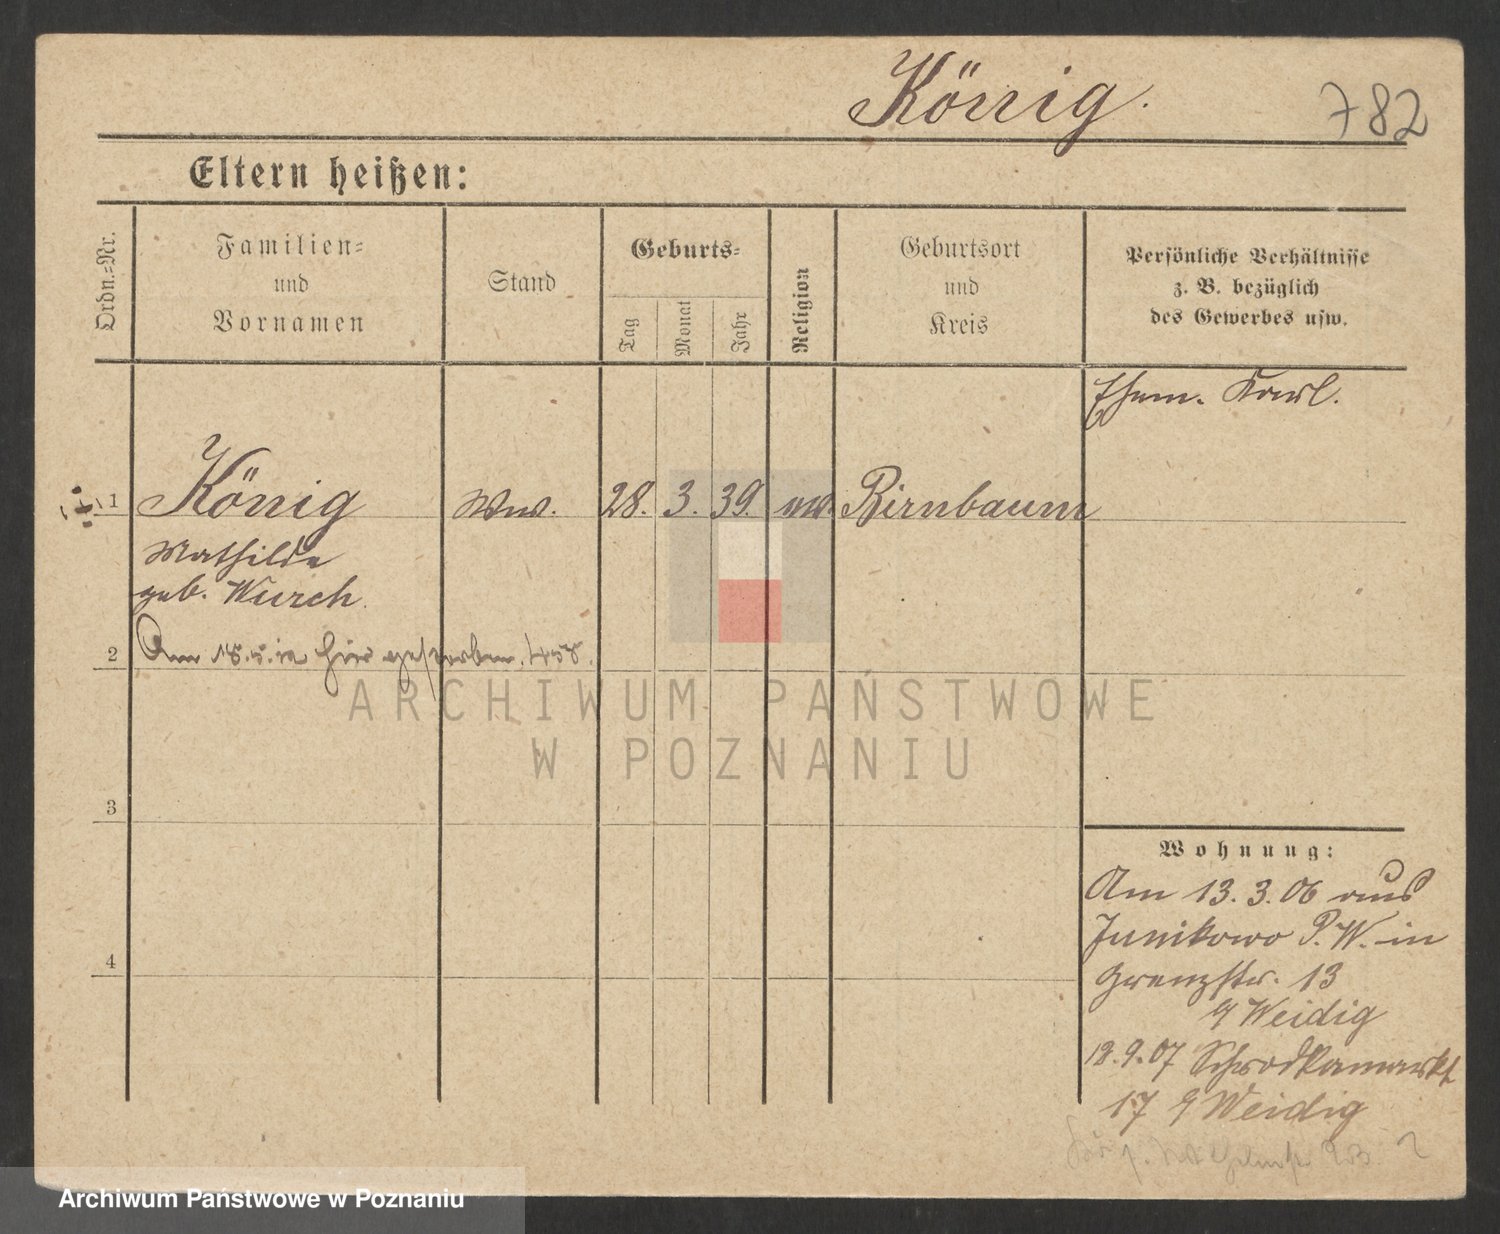 König.
782
Eltern heißen:
Ordn.=Nr.
Familien=
und
Vornamen
Stand
Geburts=
Tag
Monat
Jahr
Religion
Geburtsort
und
Kreis
Persönliche Verhältnisse
z. B. bezüglich
des Gewerbes usw.
Ehem. Karl.
1
König
Ww.
28. 3. 39.
ev.
Birnbaum
Mathilde
geb. Wurch.
2
Am 18.5. hier gestorben.
ARCHIWUM PAŃSTWOWE
W POZNANIU
3
4
Wohnung:
Am 13. 3. 06 aus
Junikowo P. W. in
Grenzstr. 13
Weidig
18.9.07 Schrodkamarkt
17 Weidig
Archiwum Państwowe w Poznaniu